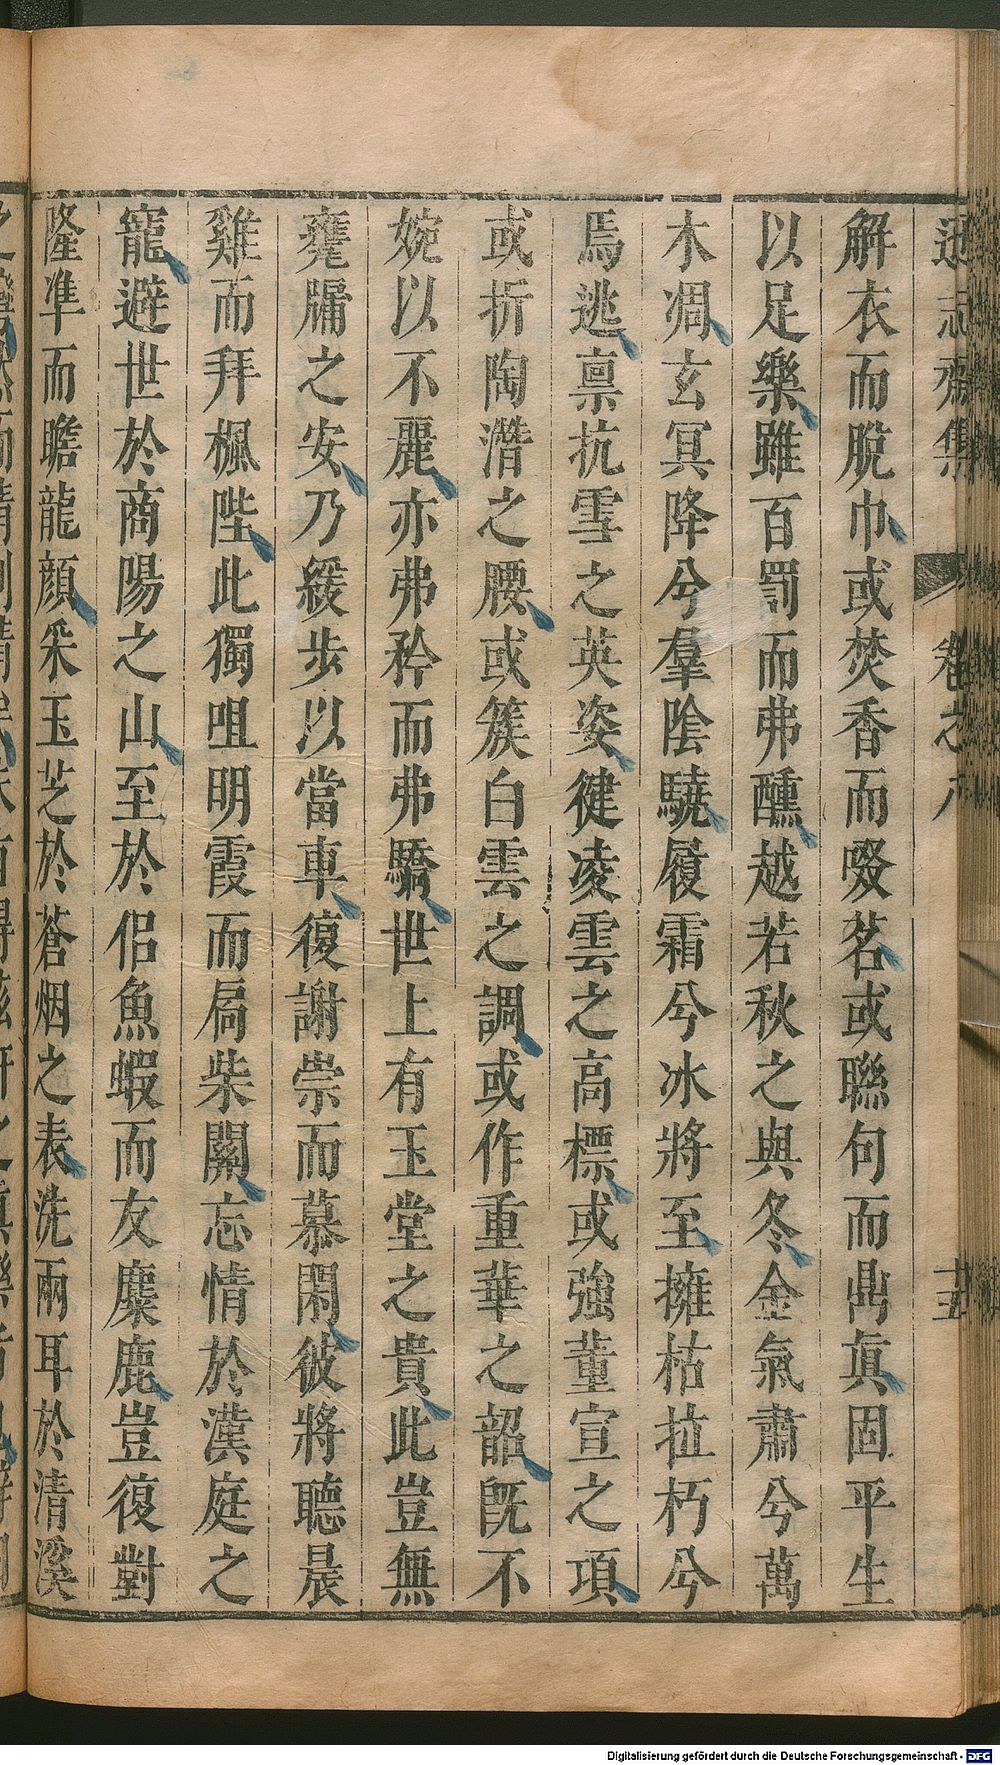 解衣而脫巾或焚香而啜茗或聯句而鼎真固平生
以足樂雖百罰而弗醺越若秋之與冬金氣肅兮萬
木凋玄冥降兮羣陰驍履霜兮氷將至擁枯拉朽兮
焉逃禀抗雪之英姿健凌雲之高標或強董宣之項
或折陶潛之腰或簇白雲之調或作重華之韶旣不
婉以不麗亦弗矜而弗驕世上有玉堂之貴此豈無
甕牖之安乃緩步以當車復謝崇而慕閑彼將聽晨
雞而拜楓陛此獨咀明霞而扄柴關忘情於漢庭之
寵避世於商陽之山至於侶魚蝦而友麋鹿豈復對
隆準而瞻龍顏采玉芝於蒼烟之表洗兩耳於清溪
遜志齋集
卷之八
Digitalisierung gefördert durch die Deutsche Forschungsgemeinschaft - DFG